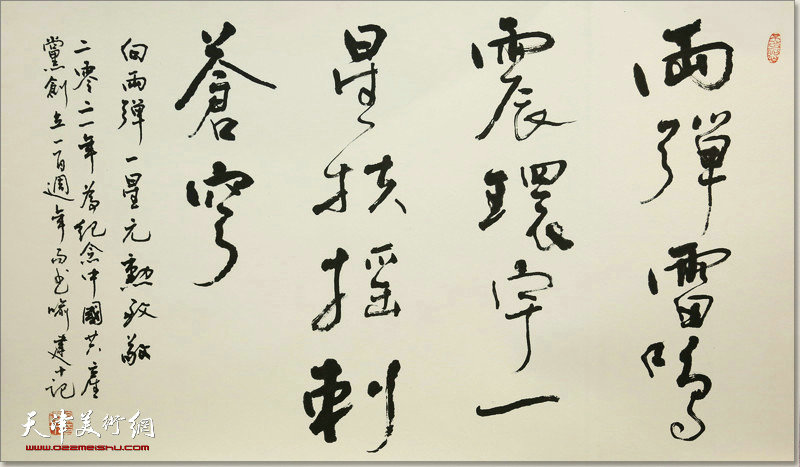 兩彈雷鳴
震環宇一
星扶摇刺
蒼穹
向兩彈一星元勲致敬
二零二一年為纪念中國共產
黨創立一百週年而书喻建十记
天津美術網
www.022meishu.com